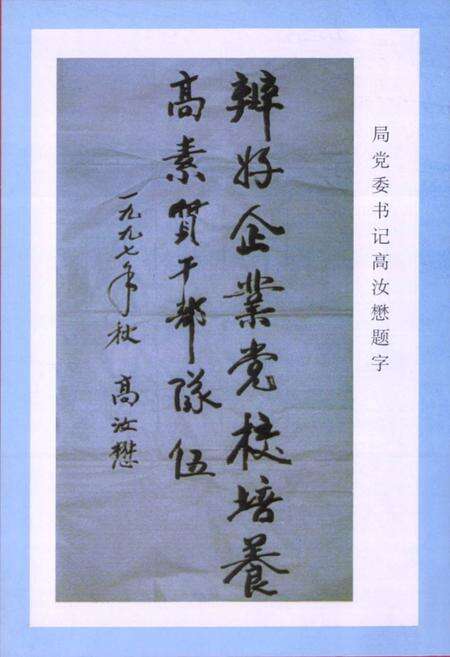 局党委书记高汝懋题字
辦好企業党校培養
高素質干部隊伍
一九九七年秋 高汝懋